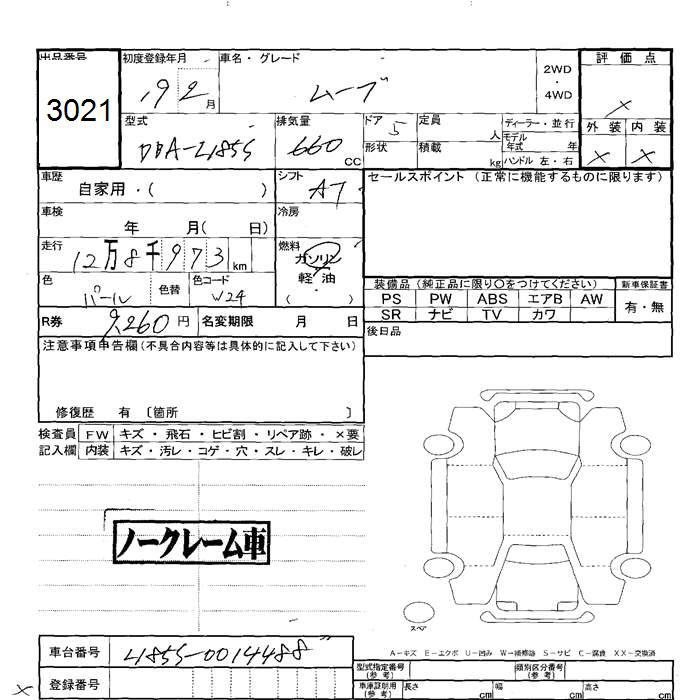 出品番号 初度登録年月 車名・グレード 2WD ・ 4WD 評価点
3021 19 2 月 ムーブ ×
型式 排気量 ドア 定員 ディーラー・並行 外装 内装
DBA-L185S 660 CC 5 人 モデル年式 年 × ×
形状 積載 kg ハンドル 左・右
車歴 シフト セールスポイント (正常に機能するものに限ります)
自家用・( ) AT
車検 冷房
年 月( 日)
走行 燃料
12万8千973 km ガソリン
軽・油
色 色替 色コード ( ) 装備品 (純正品に限り○をつけてください) 新車保証書
パール W24 PS PW ABS エアB AW 有・無
SR ナビ TV カワ
R券 9,260 円 名変期限 月 日 後日品
注意事項申告欄(不具合内容等は具体的に記入して下さい)
修復歴 有 〔箇所 〕
検査員 FW キズ・飛石・ヒビ割・リペア跡・×要
記入欄 内装 キズ・汚レ・コゲ・穴・スレ・キレ・破レ
ノークレーム車
スペア
A-キズ E-エクボ U-凹み W-補修跡 S-サビ C-腐食 XX-交換済
車台番号 L185S-0014488
型式指定番号(参考) 類別区分番号(参考)
× 登録番号 車庫証明用(参考) 長さ cm 幅 cm 高さ cm